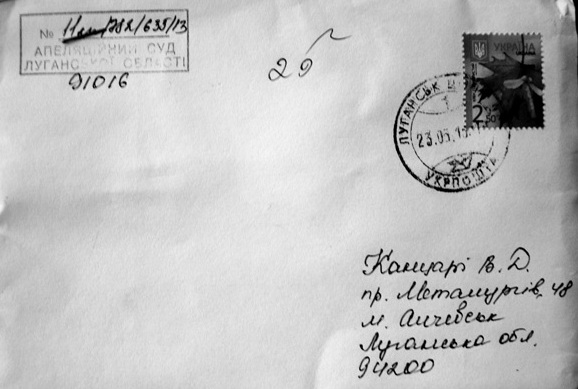 № 11кп/782/635/13
АПЕЛЯЦІЙНИЙ СУД
ЛУГАНСЬКОЇ ОБЛАСТІ
91016
29
УКРАЇНА
2
50
ЛУГАНСЬК
1
23.05.13
УКРПОШТА
Канцарі В. Д.
пр. Металургів, 48
м. Алчевськ
Луганська обл.
94200